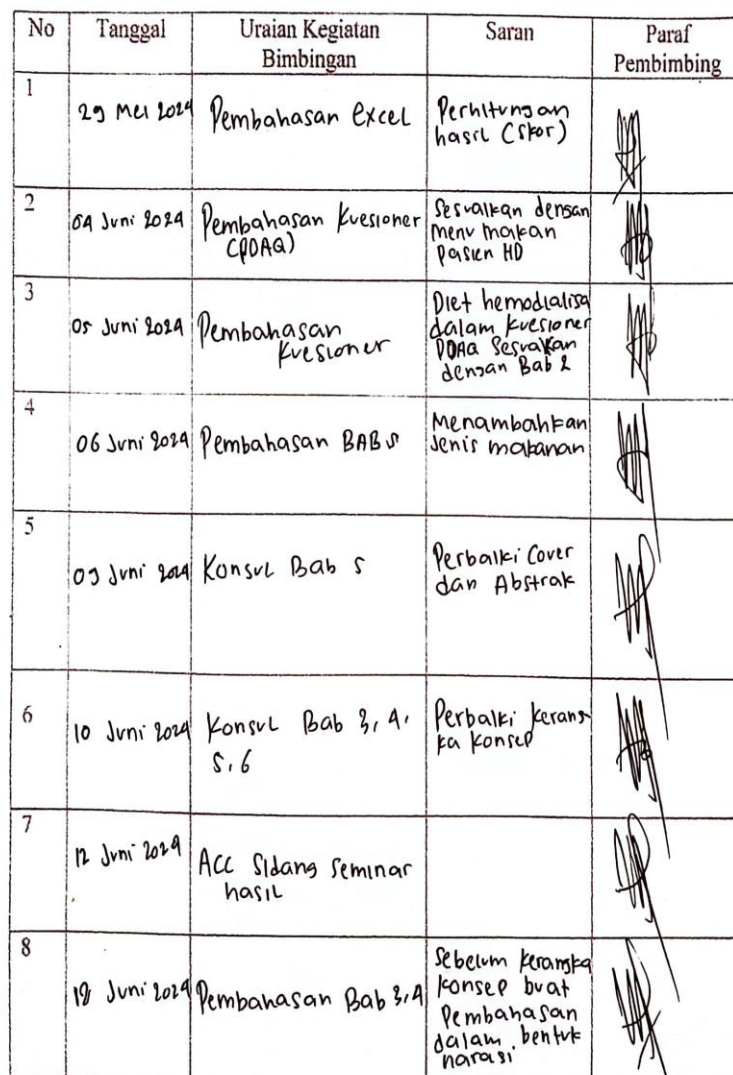 No Tanggal Uraian Kegiatan Bimbingan Saran Paraf Pembimbing
1 29 Mei 2024 Pembahasan Excel Perhitungan
hasil (Skor)
2 04 Juni 2024 Pembahasan Kuesioner
(PDAQ) Sesuaikan dengan
menu makan
pasien HD
3 05 Juni 2024 Pembahasan
Kuesioner Diet hemodialisa
dalam kuesioner
PDAQ Sesuaikan
dengan Bab 2
4 06 Juni 2024 Pembahasan BAB 5 Menambahkan
Jenis makanan
5 09 Juni 2024 Konsul Bab 5 Perbaiki Cover
dan Abstrak
6 10 Juni 2024 Konsul Bab 3, 4,
5, 6 Perbaiki Kerang
ka Konsep
7 12 Juni 2024 ACC Sidang Seminar
hasil
8 Juni 2024 Pembahasan Bab 3,4 Sebelum kerangka
konsep buat
Pembahasan
dalam bentuk
narasi